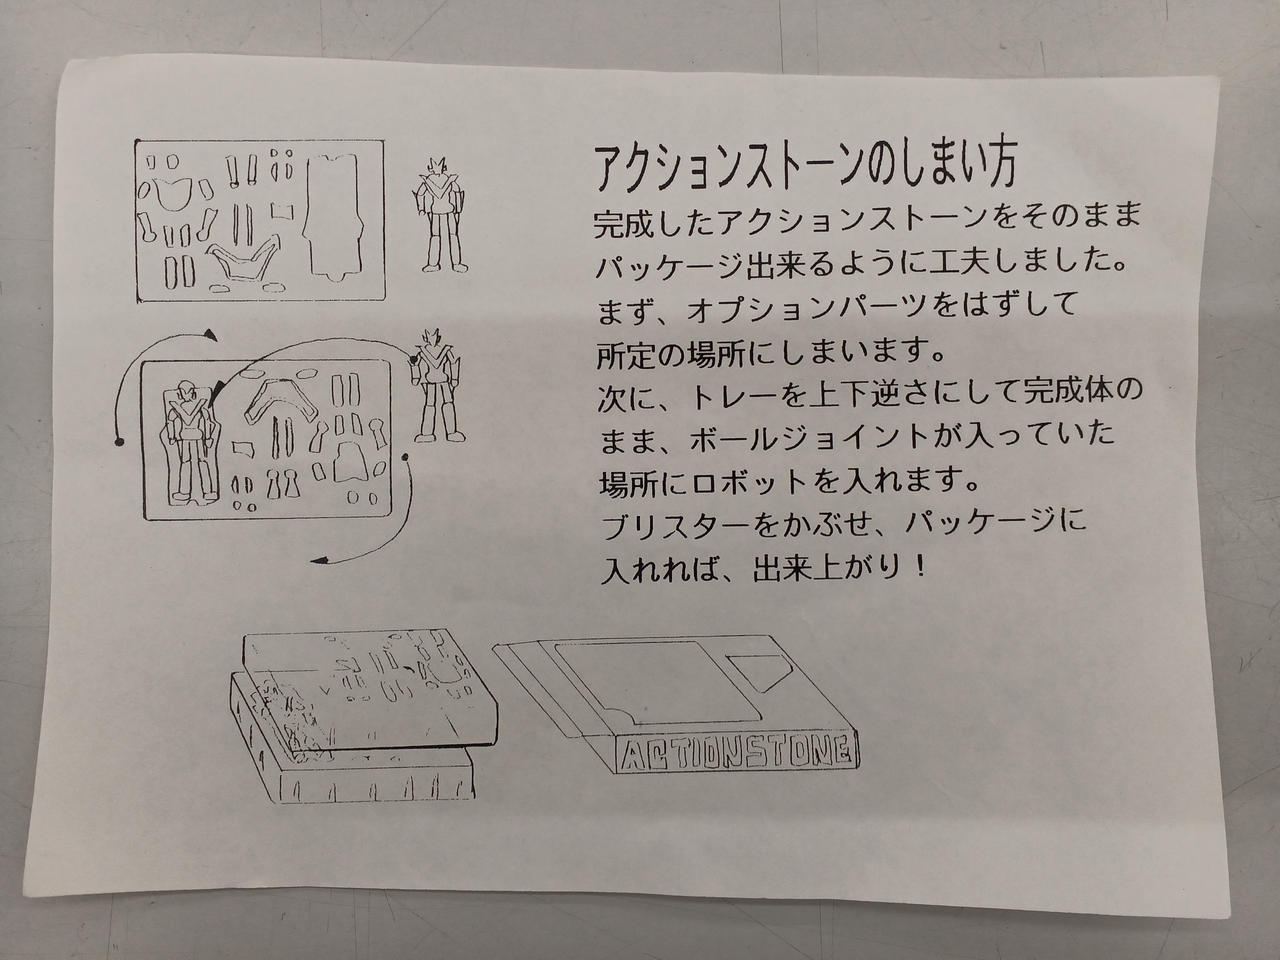 アクションストーンのしまい方
完成したアクションストーンをそのまま
パッケージ出来るように工夫しました。
まず、オプションパーツをはずして
所定の場所にしまいます。
次に、トレーを上下逆さにして完成体の
まま、ボールジョイントが入っていた
場所にロボットを入れます。
ブリスターをかぶせ、パッケージに
入れれば、出来上がり！
ACTIONSTONE